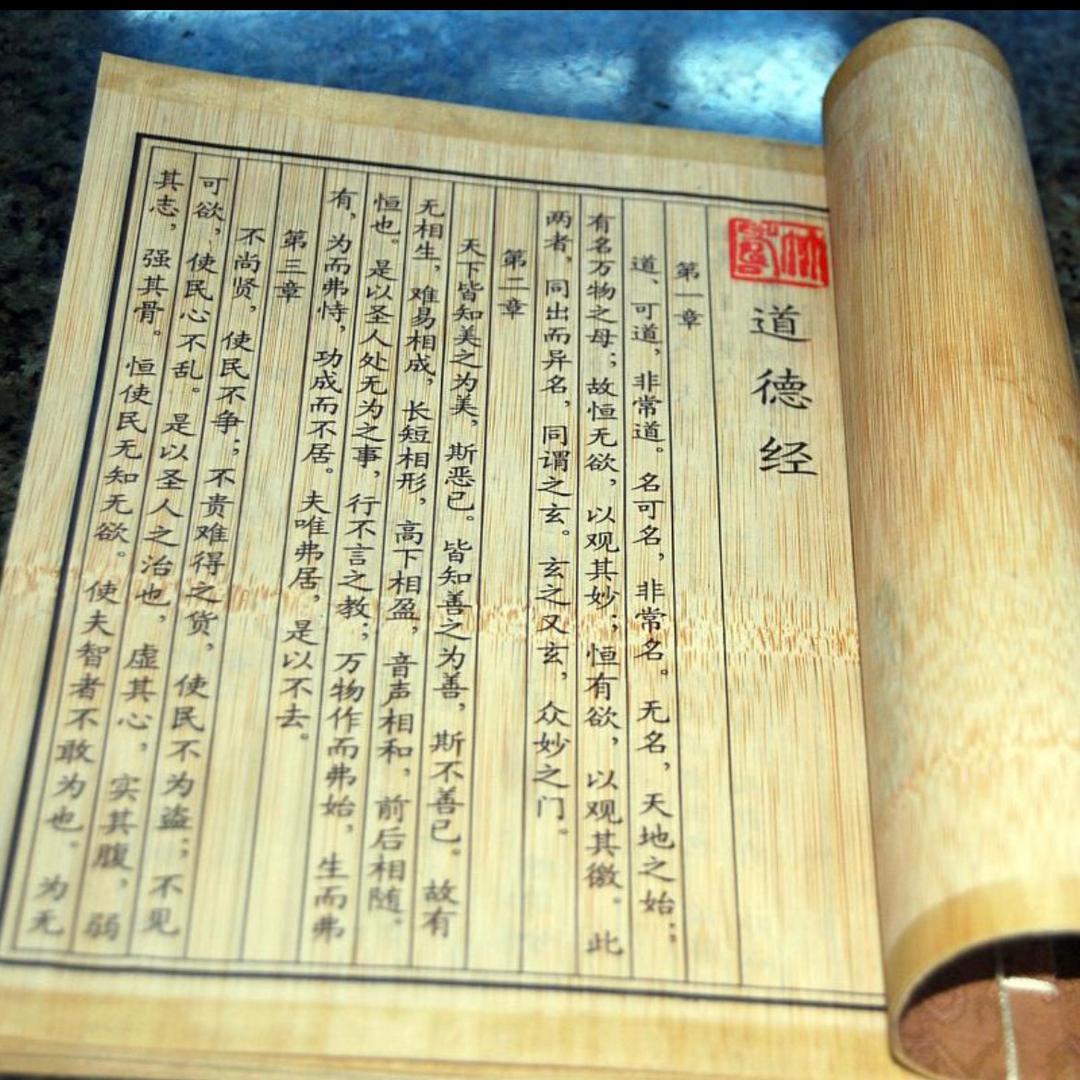 道德经
第一章
道、可道，非常道。名可名，非常名。无名，天地之始；
有名万物之母；故恒无欲，以观其妙；恒有欲，以观其徼。此
两者，同出而异名，同谓之玄。玄之又玄，众妙之门。
第二章
天下皆知美之为美，斯恶已。皆知善之为善，斯不善已。故有
无相生，难易相成，长短相形，高下相盈，音声相和，前后相随。
恒也。是以圣人处无为之事，行不言之教；万物作而弗始，生而弗
有，为而弗恃，功成而不居。夫唯弗居，是以不去。
第三章
不尚贤，使民不争；不贵难得之货，使民不为盗；不见
可欲，使民心不乱。是以圣人之治也，虚其心，实其腹，弱
其志，强其骨。恒使民无知无欲。使夫智者不敢为也。为无